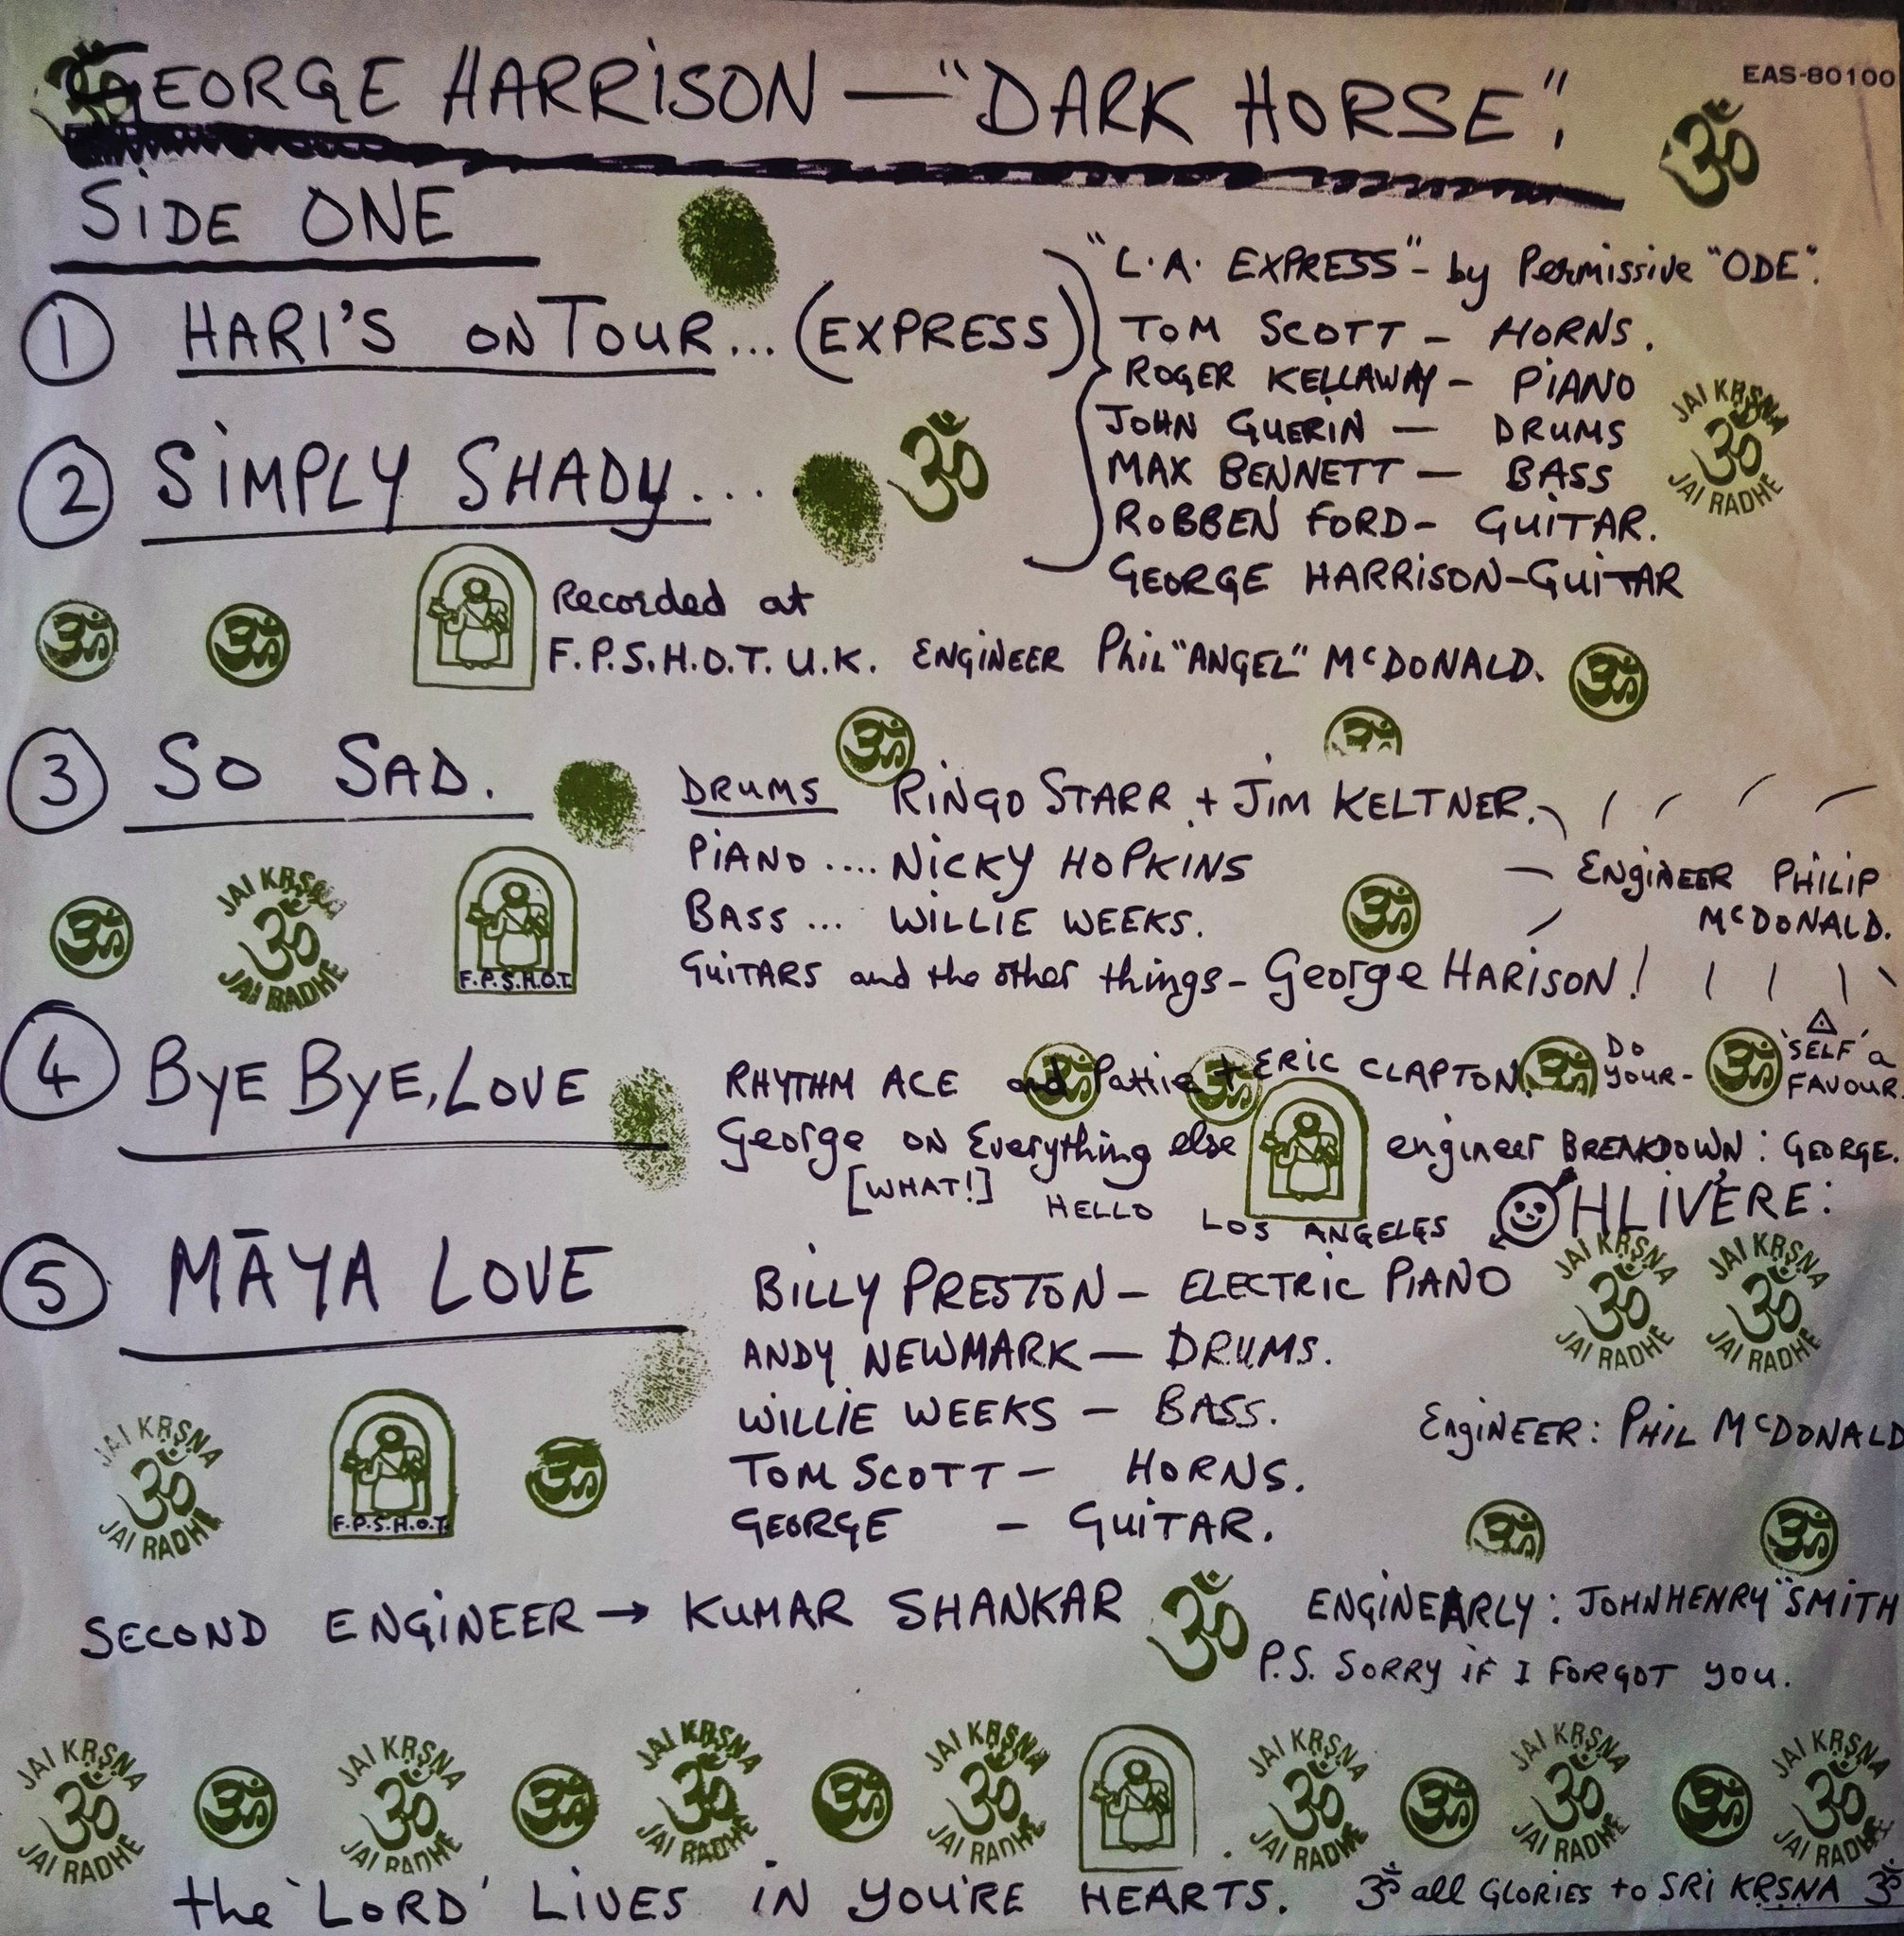 GEORGE HARRISON — "DARK HORSE".
EAS-80100
SIDE ONE
① HARI'S ON TOUR... (EXPRESS)
"L.A. EXPRESS" - by Permissive "ODE".
TOM SCOTT - HORNS.
ROGER KELLAWAY - PIANO
JOHN GUERIN — DRUMS
MAX BENNETT — BASS
ROBBEN FORD - GUITAR.
GEORGE HARRISON - GUITAR
JAI KṚṢṆA
ॐ
JAI RADHE
② SIMPLY SHADY...
Recorded at
F.P.S.H.O.T. U.K. ENGINEER Phil "ANGEL" McDONALD.
③ SO SAD.
DRUMS RINGO STARR + JIM KELTNER.
PIANO .... NICKY HOPKINS
BASS ... WILLIE WEEKS.
GUITARS and the other things - George HARISON!
ENGINEER PHILIP
McDONALD.
JAI KṚṢṆA
ॐ
JAI RADHE
F.P.S.H.O.T.
④ BYE BYE, LOVE
RHYTHM ACE and Pattie + ERIC CLAPTON.
DO
YOUR-
'SELF' a
FAVOUR.
George ON Everything else
engineer BREAKDOWN: GEORGE.
[WHAT!] HELLO LOS ANGELES
OHLIVERE:
⑤ MĀYA LOVE
BILLY PRESTON - ELECTRIC PIANO
ANDY NEWMARK — DRUMS.
WILLIE WEEKS - BASS.
TOM SCOTT - HORNS.
GEORGE - GUITAR.
JAI KṚṢṆA
ॐ
JAI RADHE
JAI KṚṢṆA
ॐ
JAI RADHE
ENGINEER: PHIL McDONALD
JAI KṚṢṆA
ॐ
JAI RADHE
F.P.S.H.O.T.
SECOND ENGINEER → KUMAR SHANKAR
ENGINEARLY: JOHNHENRY "SMITH
P.S. SORRY IF I FORGOT YOU.
JAI KṚṢṆA JAI KṚṢṆA JAI KṚṢṆA JAI KṚṢṆA JAI KṚṢṆA JAI KṚṢṆA JAI KṚṢṆA
ॐ ॐ ॐ ॐ ॐ ॐ ॐ ॐ ॐ ॐ ॐ ॐ
JAI RADHE JAI RADHE JAI RADHE JAI RADHE JAI RADHE JAI RADHE JAI RADHE
the 'LORD' LIVES IN YOU'RE HEARTS.
ॐ all GLORIES to SRI KṚṢṆA ॐ